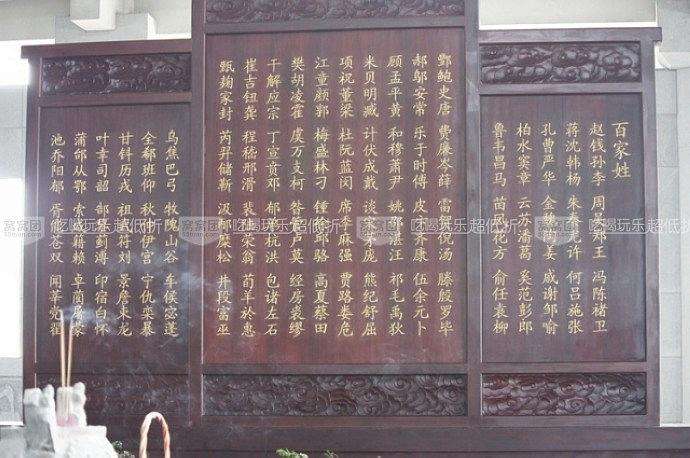 百家姓
赵钱孙李 周吴郑王 冯陈褚卫
蒋沈韩杨 朱秦尤许 何吕施张
孔曹严华 金魏陶姜 戚谢邹喻
柏水窦章 云苏潘葛 奚范彭郎
鲁韦昌马 苗凤花方 俞任袁柳
酆鲍史唐 费廉岑薛 雷贺倪汤 滕殷罗毕
郝邬安常 乐于时傅 皮卞齐康 伍余元卜
顾孟平黄 和穆萧尹 姚邵湛汪 祁毛禹狄
米贝明臧 计伏成戴 谈宋茅庞 熊纪舒屈
项祝董梁 杜阮蓝闵 席季麻强 贾路娄危
江童颜郭 梅盛林刁 钟徐邱骆 高夏蔡田
樊胡凌霍 虞万支柯 昝管卢莫 经房裘缪
干解应宗 丁宣贲邓 郁单杭洪 包诸左石
崔吉钮龚 程嵇邢滑 裴陆荣翁 荀羊於惠
甄麹家封 芮羿储靳 汲邴糜松 井段富巫
乌焦巴弓 牧隗山谷 车侯宓蓬
全郗班仰 秋仲伊宫 宁仇栾暴
甘钭历戎 祖武符刘 景詹束龙
叶幸司韶 郜黎蓟溥 印宿白怀
蒲邰从鄂 索咸籍赖 卓蔺屠蒙
池乔阳郁 胥能苍双 闻莘党翟
窝窝团 吃喝玩乐超低折